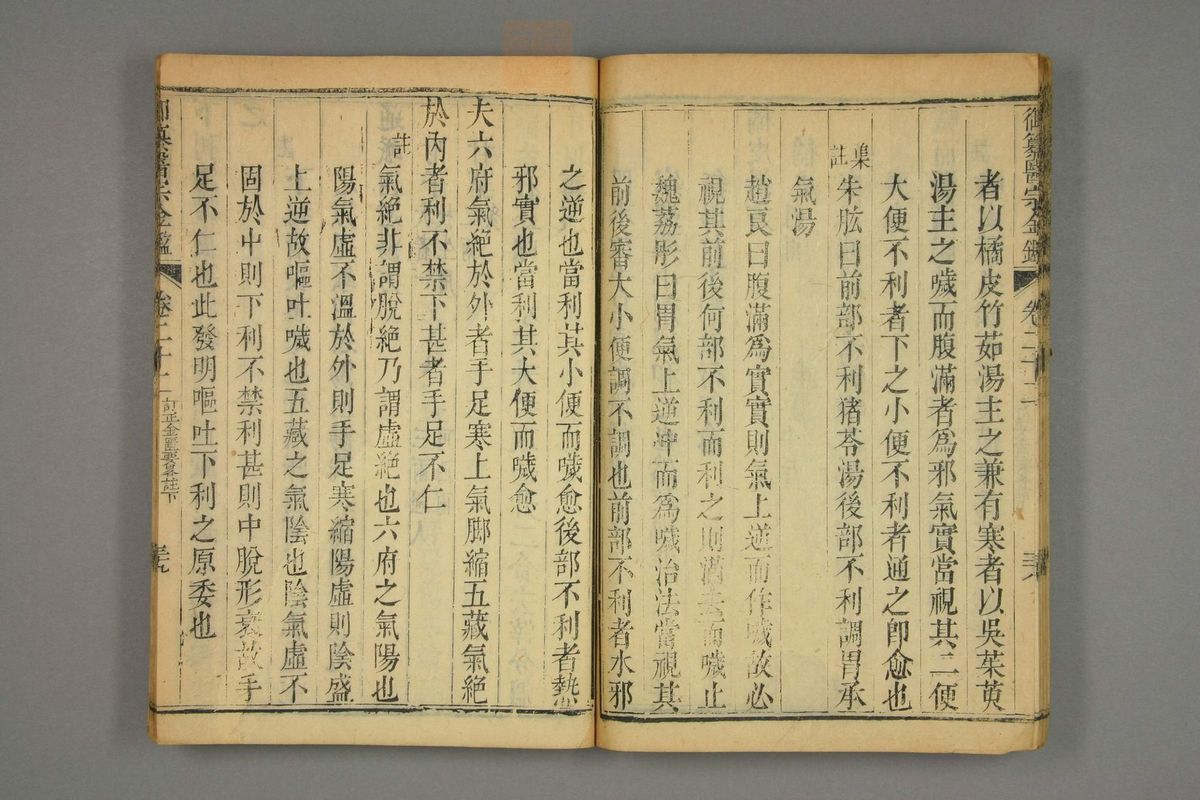 御纂醫宗金鑑 卷二十二 三十八
者以橘皮竹茹湯主之兼有寒者以吳茱萸
湯主之噦而腹滿者為邪氣實當視其二便
大便不利者下之小便不利者通之卽愈也
集註 朱肱曰前部不利猪苓湯後部不利調胃承
氣湯
趙良曰腹滿為實實則氣上逆而作噦故必
視其前後何部不利而利之則滿去而噦止
魏荔彤曰胃氣上逆冲而為噦治法當視其
前後審大小便調不調也前部不利者水邪
之逆也當利其小便而噦愈後部不利者熱
邪實也當利其大便而噦愈
夫六府氣絕於外者手足寒上氣脚縮五藏氣絕
於內者利不禁下甚者手足不仁
註 氣絕非謂脫絕乃謂虛絕也六府之氣陽也
陽氣虛不溫於外則手足寒縮陽虛則陰盛
上逆故嘔吐噦也五藏之氣陰也陰氣虛不
固於中則下利不禁利甚則中脫形衰故手
足不仁也此發明嘔吐下利之原委也
御纂醫宗金鑑 卷二十二 訂正金匱要畧註下 三十九